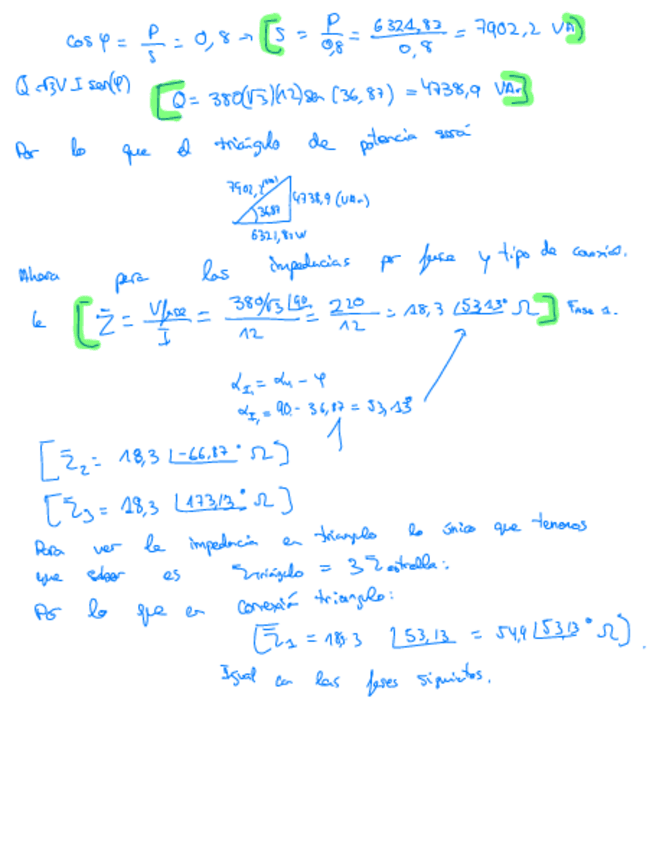 cos φ = P/S = 0,8 → [S = P/0,8 = 6321,82/0,8 = 7902,2 VA]
Q = √3 V I sen(φ) [Q = 380(√3)(12) sen (36,87) = 4738,9 VAr]
Por lo que el triángulo de potencia será
7902,2 (VA)
4738,9 (VAr)
36,87
6321,82 W
Ahora para las impedancias por fase y tipo de conexión.
[Z̄ = Vfase/I = 380/√3 ∠90/12 = 220/12 = 18,3 ∠53,13° Ω] Fase 1.
α_I₁ = α_u₁ - φ
α_I₁ = 90 - 36,87 = 53,13°
[Z̄₂ = 18,3 ∠-66,87° Ω]
[Z̄₃ = 18,3 ∠173,13° Ω]
Para ver la impedancia en triangulo lo único que tenemos
que saber es Ztriángulo = 3 Zestrella:
Por lo que en conexión triangulo:
[Z̄₁ = 18,3 ∠53,13 = 54,9 ∠53,13° Ω].
Igual en las fases siguientes.